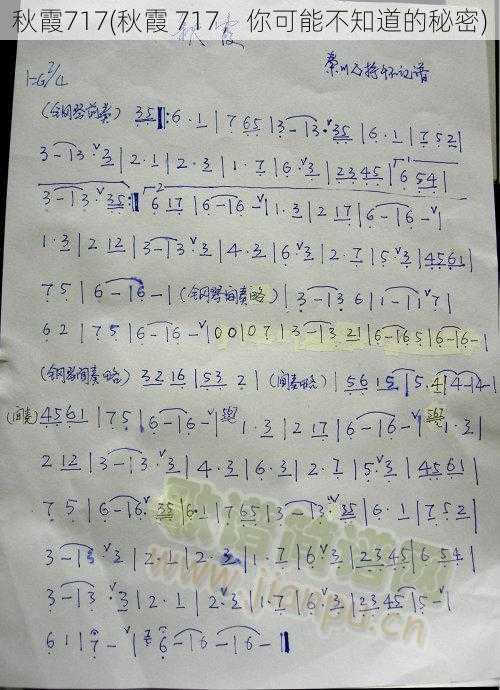 秋霞717(秋霞 717，你可能不知道的秘密)
秋霞
1=G 2/4
(钢琴前奏) 35‖: 6·1 | 7 65 | 3-|3·35 | 6·1 | 7 52 |
3-|3·3 | 2·1 | 2·3 | 1·7 | 6·3 | 2345 | 6 54 |
3-|3·35 :‖ 6 17 | 6-|6- | 1·3 | 2 17 | 6-|6- |
1·3 | 2 12 | 3-|3·3 | 4·3 | 6·3 | 2·7 | 5·3 | 4561 |
7 5 | 6-|6- | (钢琴间奏略) | 3-|3 6 | 1-|1 7 |
6 2 | 7 5 | 6-|6- | 00 | 07 | 3-|3 21 | 6-|65 | 6-|6- |
(钢琴间奏略) 32 16 | 53 2 | (间奏略) | 56 15 | 5·4 | 4-|4- |
(间奏) 4561 | 7 5 | 6-|6- | 1·3 | 2 17 | 6-|6- | 1·3 |
2 12 | 3-|3·3 | 4·3 | 6·3 | 2·7 | 5·3 | 4561 |
7 5 | 6-|6·35 | 6·1 | 7 65 | 3-|3·35 | 6·1 | 7 52 |
3-|3·3 | 2·1 | 2·3 | 1·7 | 6·3 | 2345 | 6 54 |
3-|3·3 | 2·1 | 2·3 | 1·7 | 6·3 | 2345 | 5-|
6 1 | 7- | 6-|6-|6-‖
歌谱简谱网
www.jianpu.cn